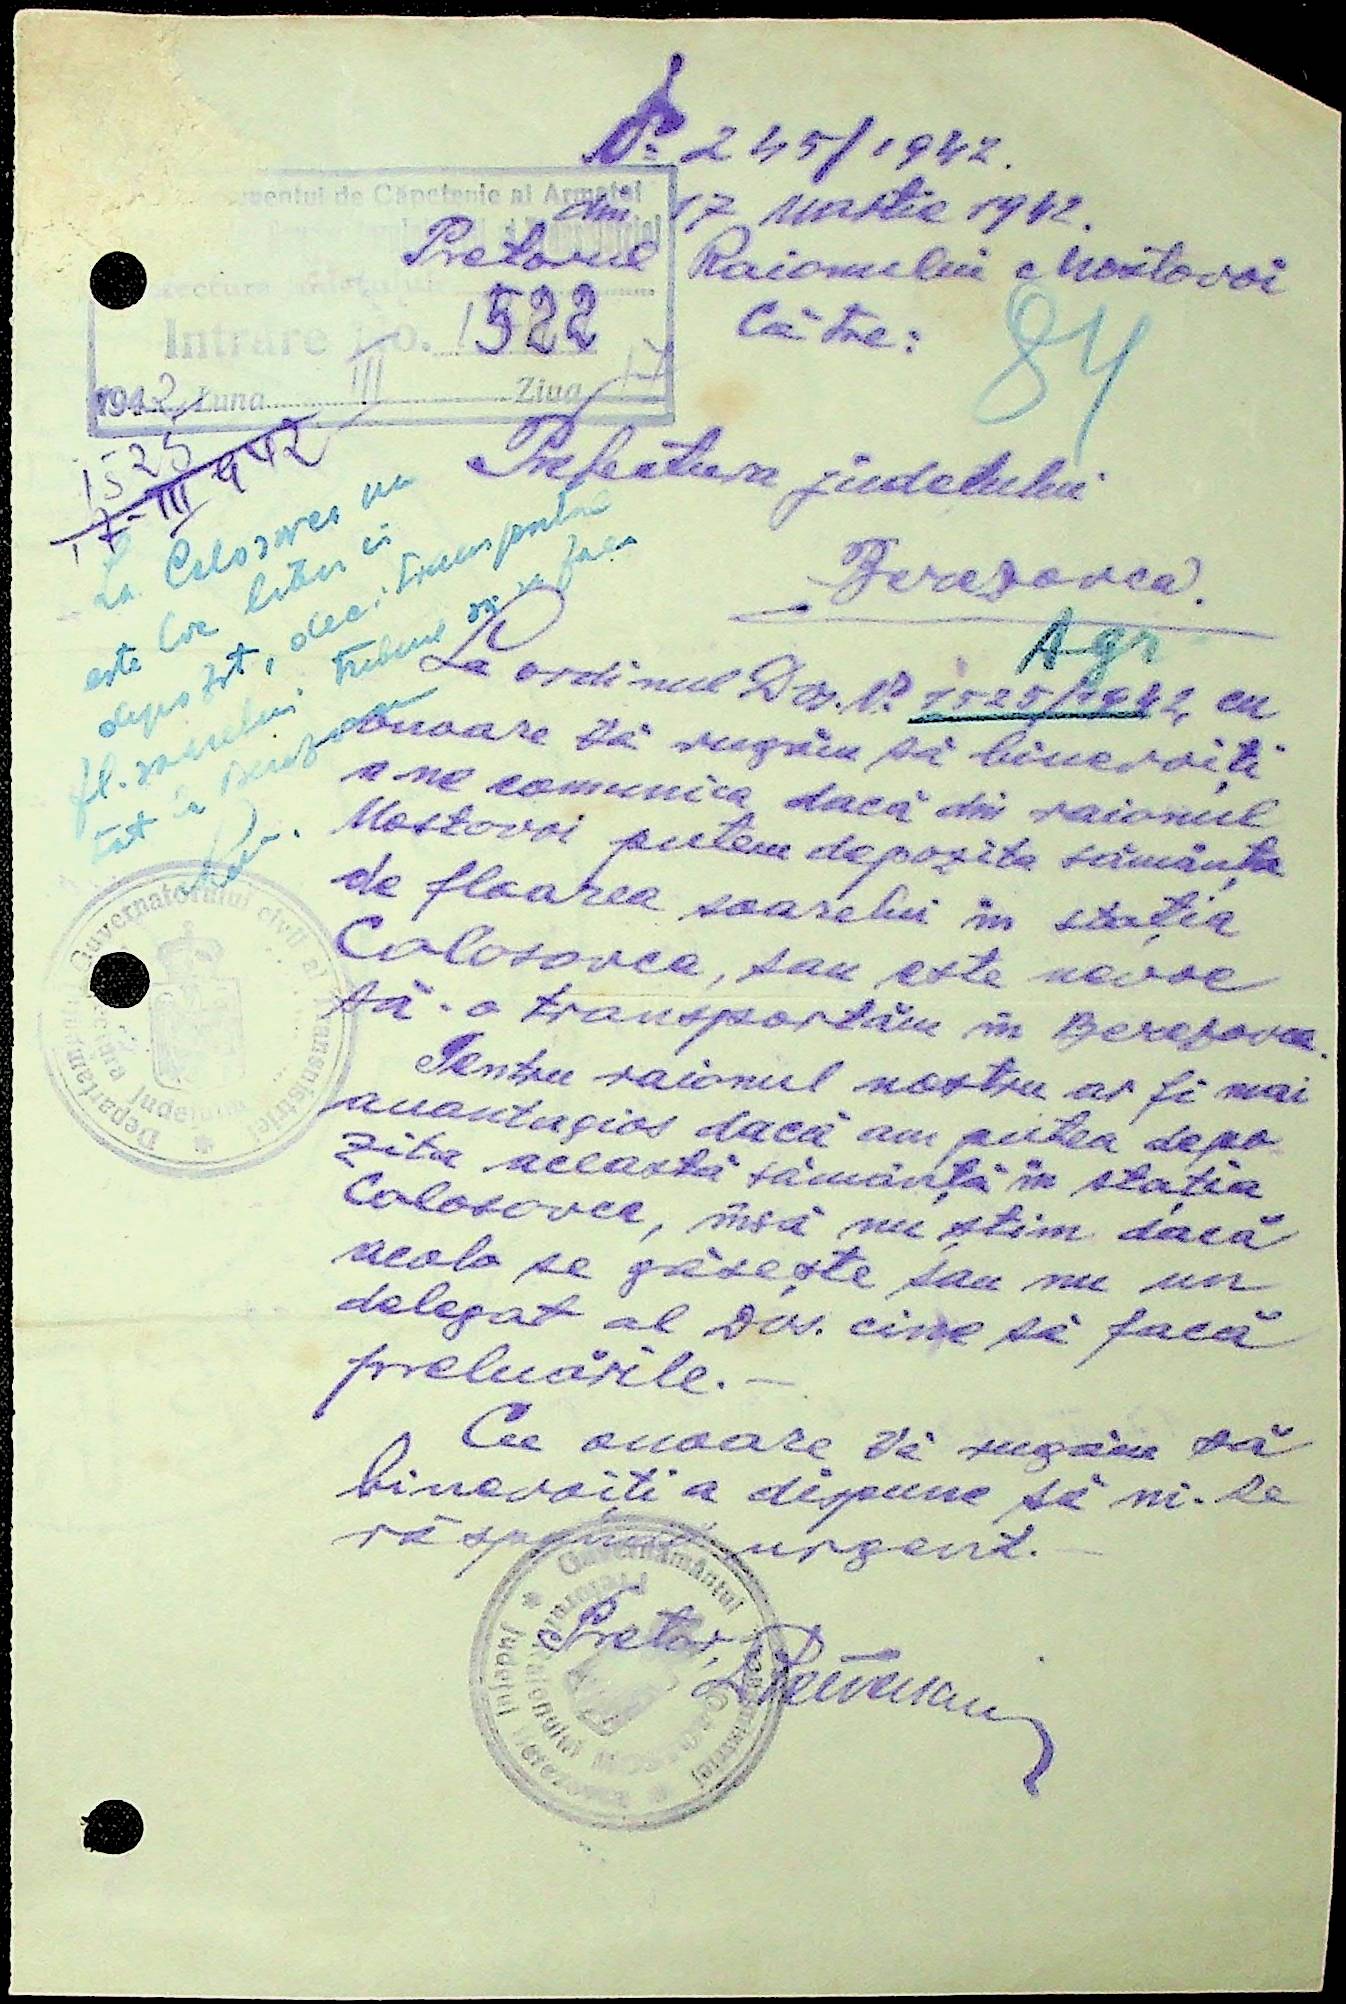 No 245/1942.
din 17 Martie 1942.
Pretorul Raionului Mostovoi
Către:
84
Prefectura judetului
Beresovca.
Agr
Guvernământul de Căpetenie al Armatei
Intrare No. 1522
1942 Luna III Ziua 17
1525
17-III 942
La Colosovca nu
este
depozit, deci transportul
fl. soarelui trebue să se faca
tot la Beresovca
La ordinul Dvs. No 1525/1942, cu
onoare Vă rugăm să binevoiți
a ne comunica dacă din raionul
Mostovoi putem depozita sămânța
de floarea soarelui în stația
Colosovca, sau este nevoe
să-o transportăm în Beresovca.
Pentru raionul nostru ar fi mai
avantagios dacă am putea depo
zita această sămânță în stația
Colosovca, însă nu știm dacă
acolo se găsește sau nu un
delegat al Dvs. cine să facă
preluările.—
Cu onoare Vă rugăm să
binevoiti a dispune să ni-se
răspundă urgent.—
Pretor,
Guvernatorului civil al Transnistriei
Județul
Guvernământul Transnistriei
Pretura Raionului
Județul